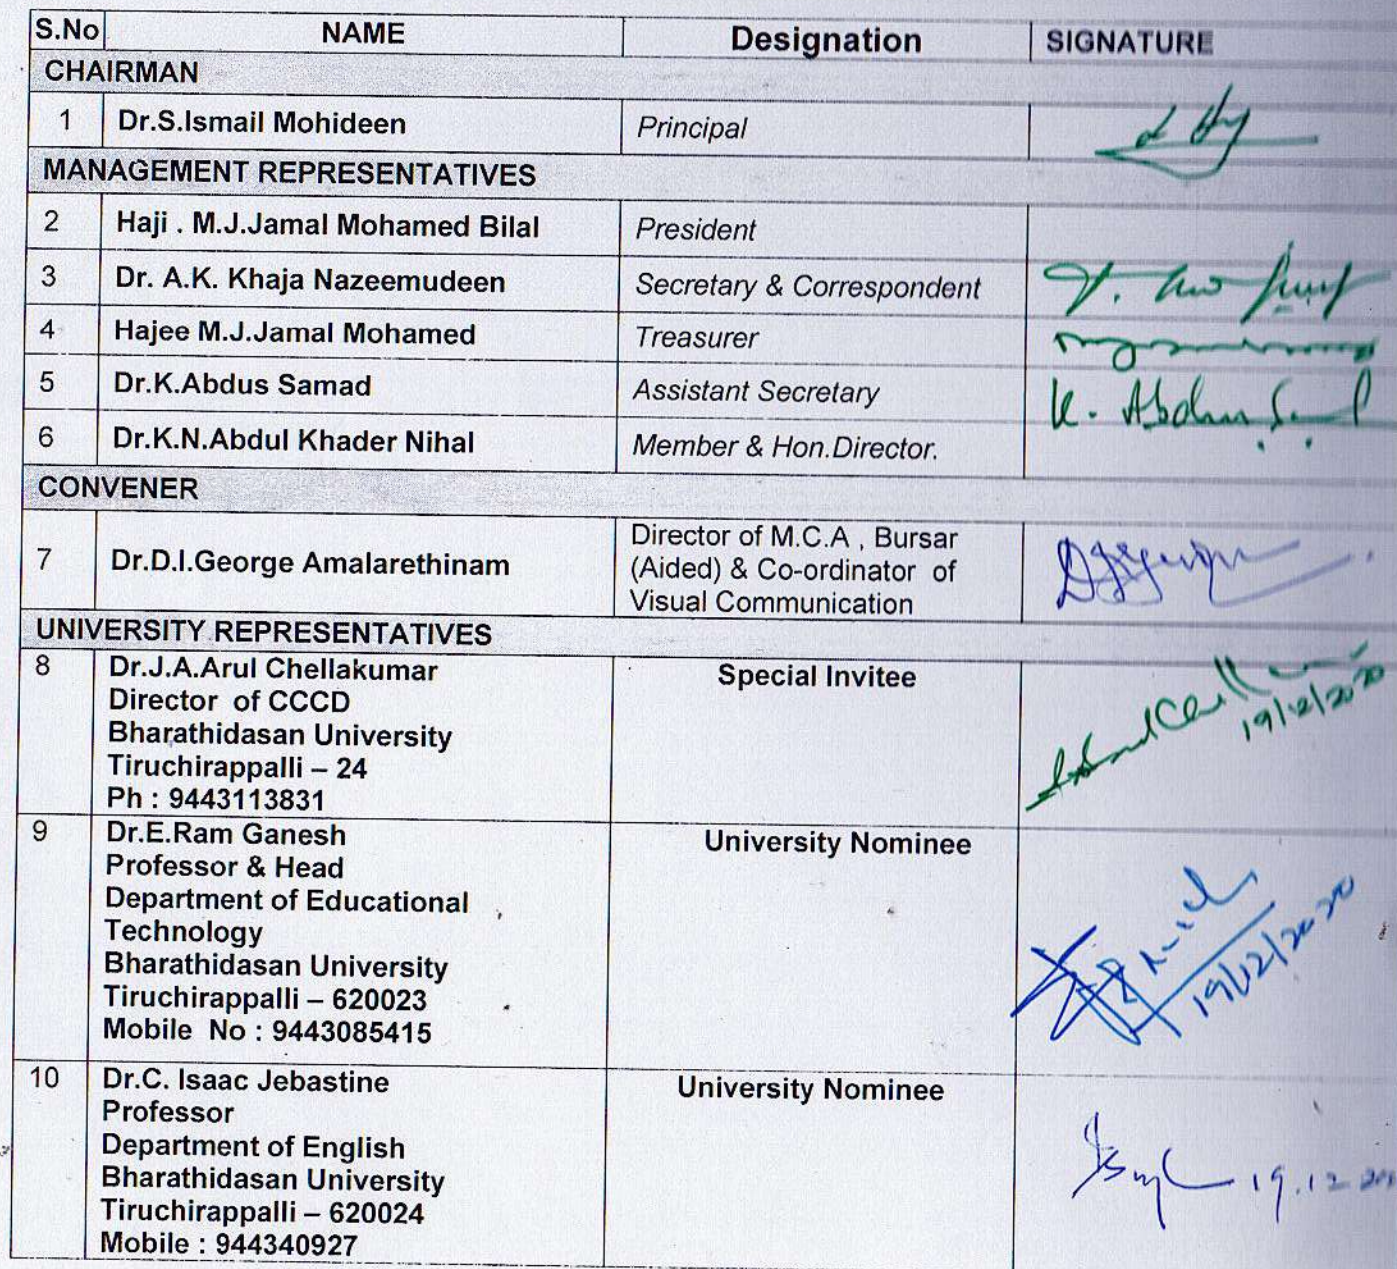 S.No NAME Designation SIGNATURE
CHAIRMAN
1 Dr.S.Ismail Mohideen Principal
MANAGEMENT REPRESENTATIVES
2 Haji . M.J.Jamal Mohamed Bilal President
3 Dr. A.K. Khaja Nazeemudeen Secretary & Correspondent
4 Hajee M.J.Jamal Mohamed Treasurer
5 Dr.K.Abdus Samad Assistant Secretary K. Abdus
6 Dr.K.N.Abdul Khader Nihal Member & Hon.Director.
CONVENER
7 Dr.D.I.George Amalarethinam Director of M.C.A , Bursar
(Aided) & Co-ordinator of
Visual Communication
UNIVERSITY REPRESENTATIVES
8 Dr.J.A.Arul Chellakumar Special Invitee
Director of CCCD
Bharathidasan University 19/12/2020
Tiruchirappalli – 24
Ph : 9443113831
9 Dr.E.Ram Ganesh University Nominee
Professor & Head
Department of Educational
Technology
Bharathidasan University 19/12/2020
Tiruchirappalli – 620023
Mobile No : 9443085415
10 Dr.C. Isaac Jebastine University Nominee
Professor
Department of English
Bharathidasan University 19.12
Tiruchirappalli – 620024
Mobile : 944340927